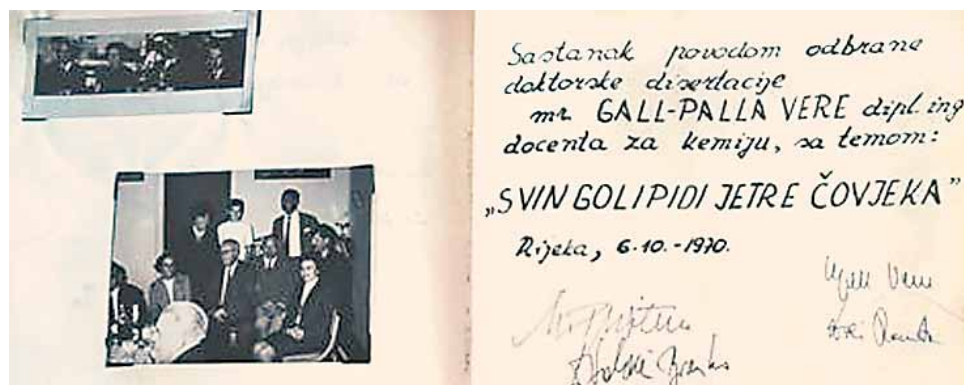 Sastanak povodom odbrane
doktorske disertacije
mr. GALL-PALLA VERE dipl. ing
docenta za kemiju, sa temom:
„SVINGOLIPIDI JETRE ČOVJEKA”
Rijeka, 6.10.-1970.